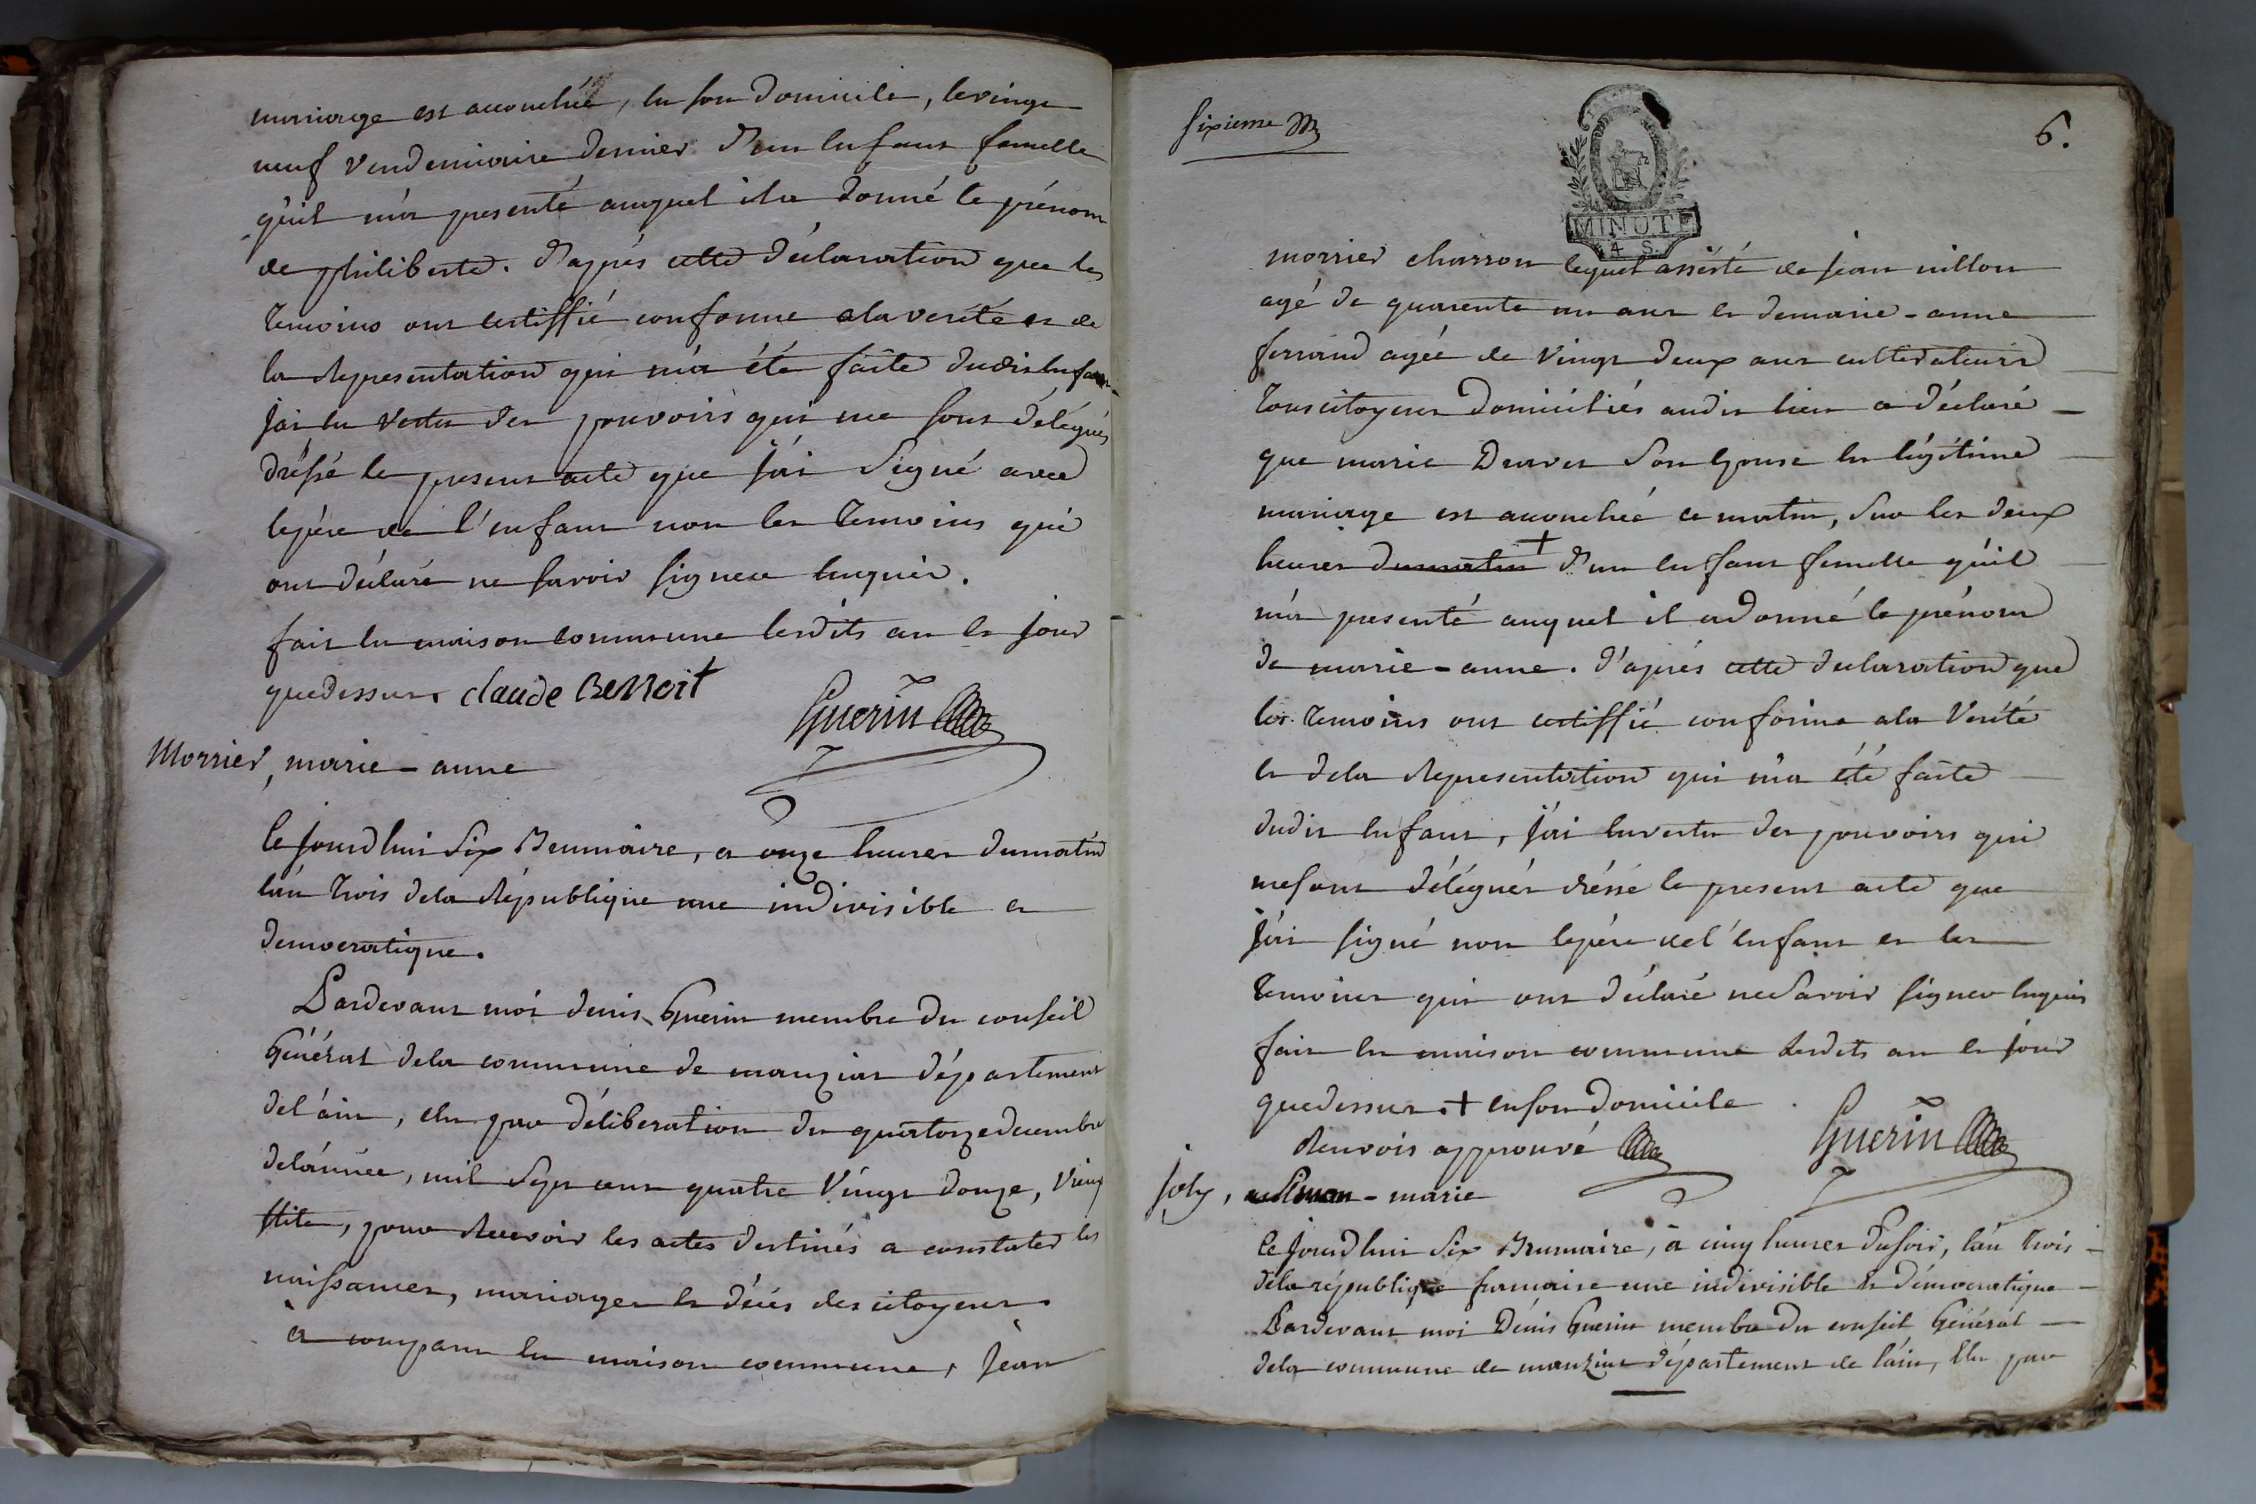 mariage est accouchée, en son domicile, le vingt
neuf vendemiaire dernier d'un enfant femelle
qu'il m'a presenté auquel il a donné le prénom
de philiberte. d'après cette déclaration que les
temoins ont certiffié conforme a la verité et de
la Representation qui m'a été faite dudit enfant
jai en vertu des pouvoirs qui me sont délégués
dréssé le present acte que j'ai signé avec
le père de l'enfant non les temoins qui
ont déclaré ne savoir signer enquis.
fait en maison commune lesdits an et jour
que dessus. claude Benoit
Guerin
Morrier, marie-anne
Cejourdhui Six Brumaire, a onze heures du matin
l'an trois de la République une indivisible et
democratique.
Pardevant moi denis Guerin membre du conseil
Général de la commune de manziat département
de l'ain, élu par déliberation du quatorze decembre
de l'année, mil sept cent quatre vingt douze, vieux
stile, pour Recevoir les actes destinés a constater les
naissances, mariages et décés des citoyens.
a comparu en maison commune, Jean
sixieme
6.
MINUTE
4 S.
morrier charron lequel assisté de jean
agé de quarente un ans et de marie-anne
ferrand agée de vingt deux ans cultivateurs
tous citoyens domiciliés audit lieu a déclaré
que marie Son Epouse en légitime
mariage est accouchée ce matin, sur les deux
heures du matin + d'un enfant femelle qu'il
m'a presenté auquel il a donné le prénom
de marie-anne. d'après cette declaration que
les temoins ont certiffié conforme a la verité
et de la Representation qui m'a été faite
dudit enfant, j'ai en vertu des pouvoirs qui
me sont délégués dréssé le present acte que
j'ai signé non le père de l'enfant et les
temoins qui ont déclaré ne Savoir signer enquis
fait en maison commune lesdits an et jour
que dessus. + en son domicile
Renvois approuvé Guerin
joly, -marie
Cejourdhui Six Brumaire, à cinq heures du soir, l'an trois
de la république francaise une indivisible et démocratique
Pardevant moi Denis Guerin membre du conseil Général
de la commune de manziat département de l'ain, Elu par